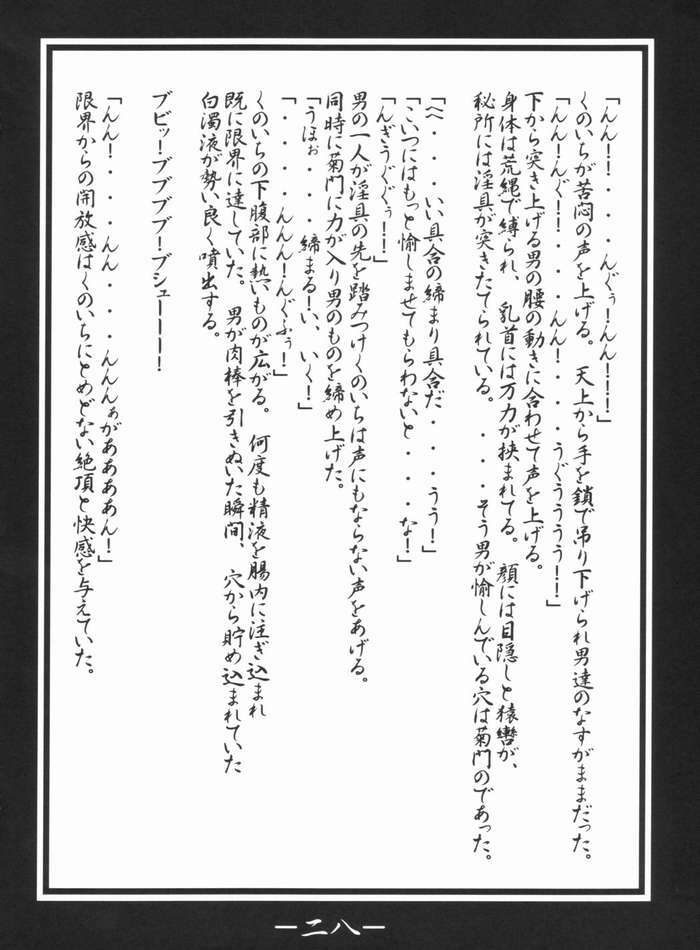 「んん！！・・・んぐぅ！んん！！！」
くのいちが苦悶の声を上げる。　天上から手を鎖で吊り下げられ男達のなすがままだった。
「んん！んぐ！！・・・んん！・・・うぐうううう！！」
下から突き上げる男の腰の動きに合わせて声を上げる。
身体は荒縄で縛られ、　乳首には万力が挟まれてる。　顔には目隠しと猿轡が、
秘所には淫具が突きたてられている。　・・・そう男が愉しんでいる穴は菊門のであった。
「へ・・・いい具合の締まり具合だ・・・うう！」
「こいつにはもっと愉しませてもらわないと・・・な！」
「んぎうぐぐぅ！！」
男の一人が淫具の先を踏みつけくのいちは声にもならない声をあげる。
同時に菊門に力が入り男のものを締め上げた。
「うほぉ・・・締まる！い、いく！」
「・・・・んんん！んぐふぅ！」
くのいちの下腹部に熱いものが広がる。　何度も精液を腸内に注ぎ込まれ
既に限界に達していた。　男が肉棒を引きぬいた瞬間、　穴から貯め込まれていた
白濁液が勢い良く噴出する。
ブビッ！ブブブブ！ブシューーー！
「んん！・・・んん・・・んんんぁがああああん！」
限界からの開放感はくのいちにとめどない絶頂と快感を与えていた。
―二八―